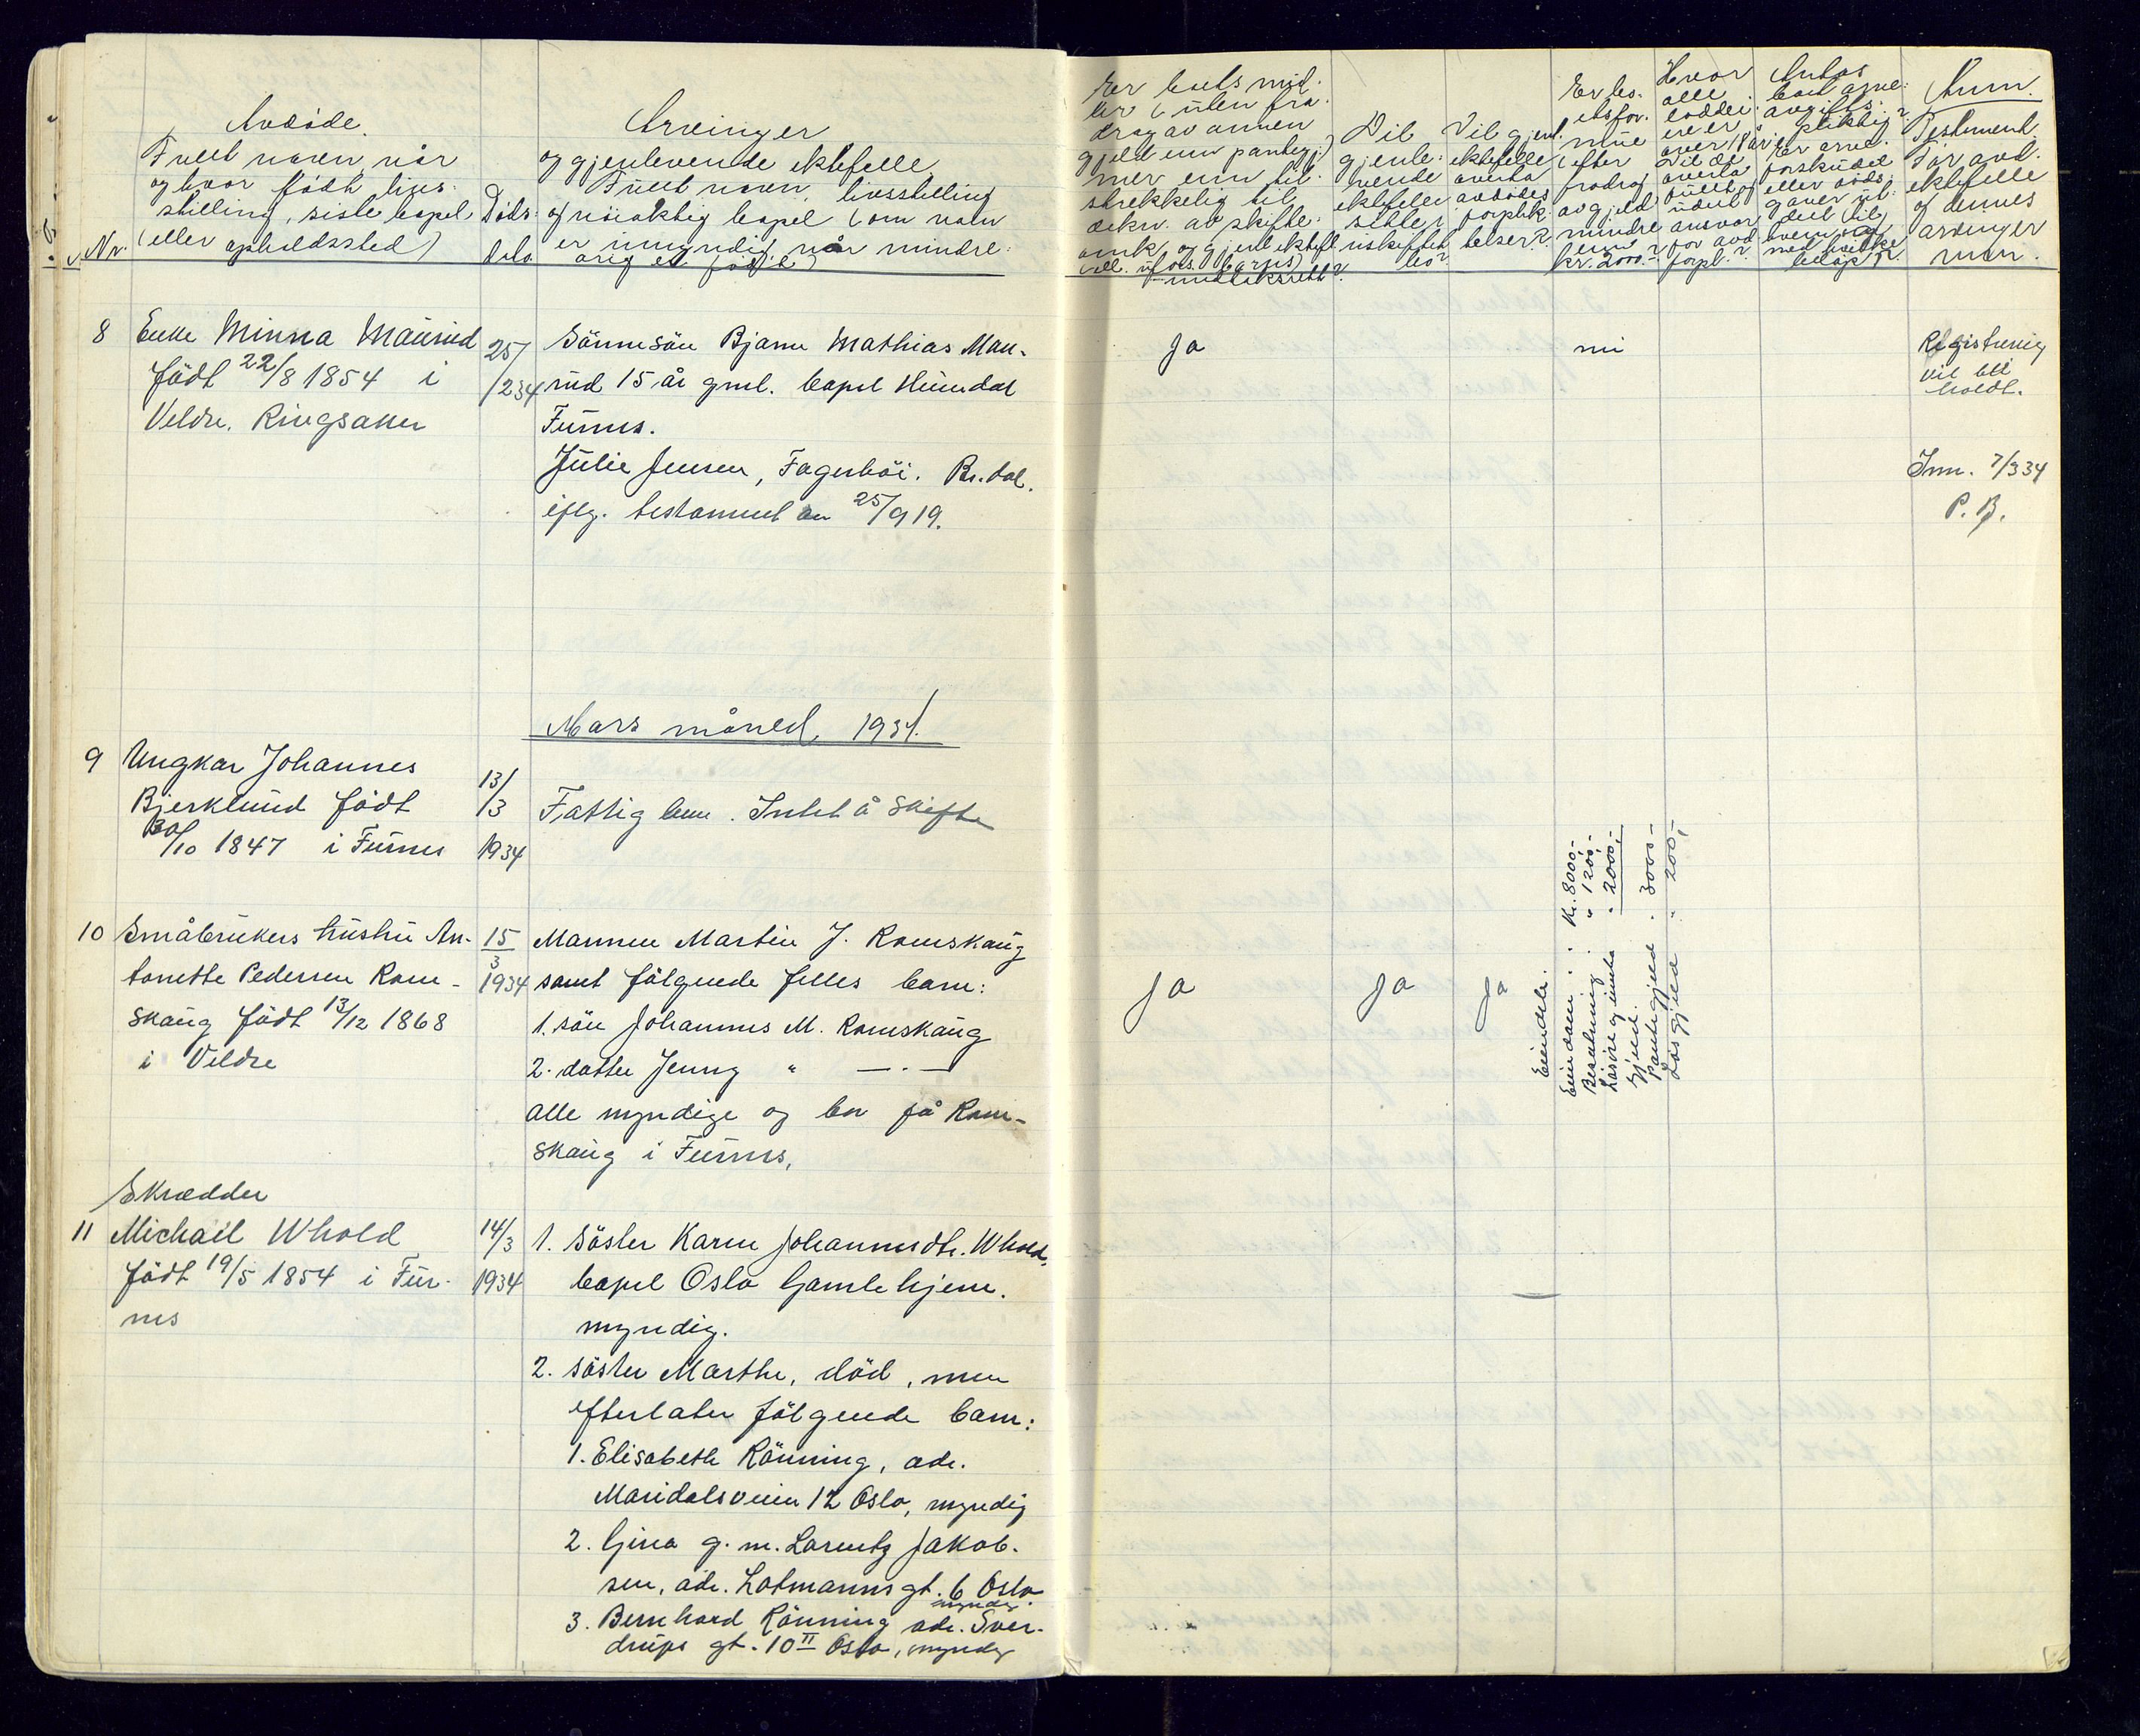 Nr.
Avdøde.
Fullt navn, når
og hvor født, livs-
stilling, siste bopel
(eller opholdssted)
Døds-
dato
Arvinger
og gjenlevende ektefelle
Fullt navn, livsstilling
og nöiaktig bopel (om noen
er umyndig, når mindre-
årig er født.)
Er boets mid-
ler (uten fra-
drag av annen
gjeld enn pantegj.)
mer enn til-
strekkelig til
dekn. av skifte-
omk. og gjenl. ektefl.
ell. ufors. barns
uttaksrett?
Vil
gjenle-
vende
ektefelle
sitte i
uskiftet
bo?
Vil gjenl.
ektefelle
overta
avdødes
forplik-
telser?
Er bo-
ets for-
mue
(efter
fradrag
av gjeld
mindre
enn
kr. 2000.-?
Hvor
alle
loddei-
ere er
over 18 år
Vil de
overta
fullt og
udelt
ansvar
for avd.
forpl.?
Antas
boet arve-
avgifts-
pliktig?
Er arve-
forskudd
eller døds-
gaver ut-
delt (til
hvem og
med hvilke
beløp)?
Anm.
Testament.
Før avd.
ektefelle
og dennes
arvinger
m.m.
8 Enke Minna Maurud
født 22/8 1854 i
Veldre. Ringsaker
25/
/2 34
Sönnesön Bjarne Mathias Mau-
rud 15 år gml. bopel Heimdal
Furnes.
Julie Jensen, Fagerhöi. Br.dal.
iflg. testament av 25/9 19.
Ja
nei
Registrering
vil bli
holdt.
Inn. 7/3 34
P. B.
Mars måned 1934.
9 Ungkar Johannes
Bjerklund født
30/10 1847 i Furnes
13/
/3
1934
Fattig lem. Intet å skifte
10 Småbrukers hustru An-
tonette Pedersen Rom-
skaug født 13/12 1868
i Veldre
15
3
1934
Mannen Martin J. Romskaug
samt følgende felles barn:
1. sön Johannes M. Romskaug
2. datter Jenny " — . —
alle myndige og bor på Rom-
skaug i Furnes,
Ja
Ja
Ja
Eiendele.
Eiendom . : Kr. 8000.-
Besetning : " 1200.-
Løsøre og innbo " 2000,-
Gjeld.
Pantegjeld . 3000.-
Løsgjeld " 200,-
Skredder
11 Michael Whold
født 19/5 1854 i Fur-
nes
14/3
1934
1. Söster Karen Johannesdtr. Whold,
bopel Oslo Gamlehjem.
myndig.
2. söster Marthe, död, men
efterlater følgende barn:
1. Elisabeth Rönning, adr.
Maridalsveien 12 Oslo, myndig
2. Gina g. m. Lorentz Jakob-
sen, adr. Lotmanns gt. 6 Oslo
myndig.
3. Bernhard Rönning adr. Sver-
drups gt. 10 II Oslo, myndig